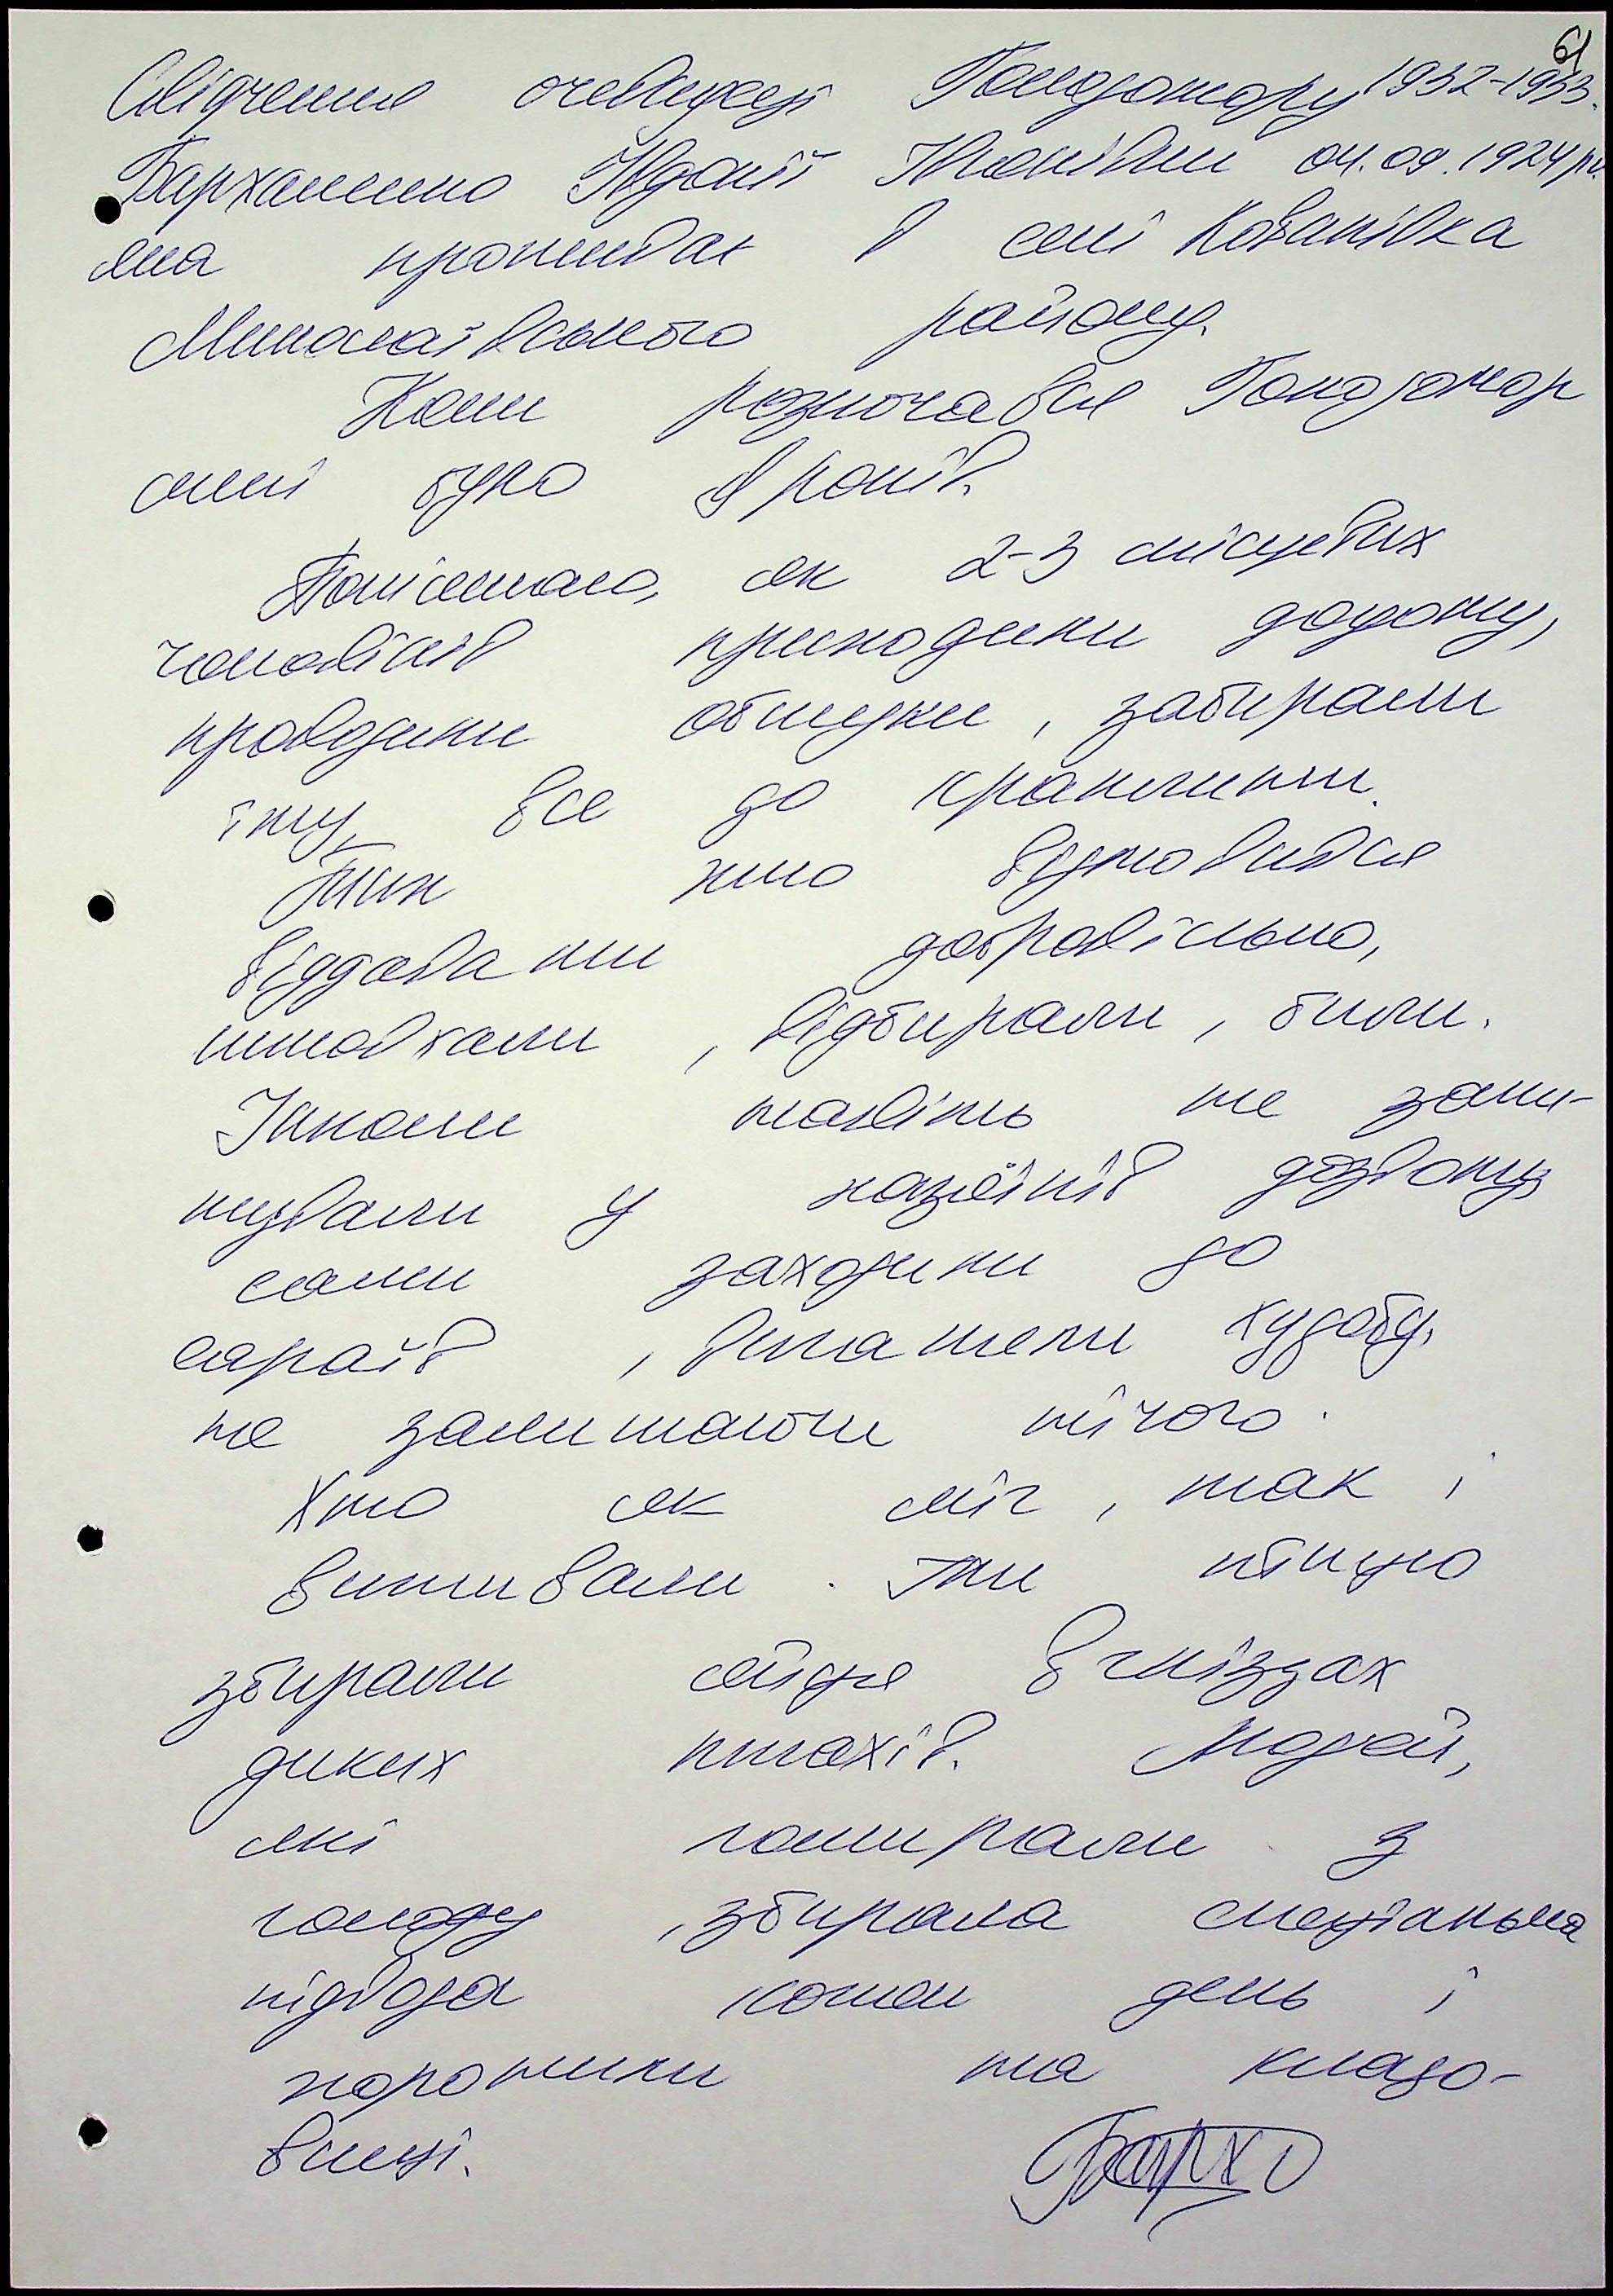 61
Свідчення очевидці Голодомору 1932-1933.
Бархаленко Надії Іванівни 04.09.1924 р.н.
яка проживає в селі Кованівка
Миколаївського району.
Коли розпочався Голодомор
мені було 8 років.
Пам'ятаю, як 2-3 місцевих
чоловіків приходили додому,
проводили обшуки, забирали
їжу, все до краплини.
Тих хто відмовився
віддавати добровільно,
штовхали, відбирали, били.
Інколи навіть не запи-
тували у хазяїнів дозволу,
самі заходили до
сараїв, виганяли худобу,
не залишаючи нічого.
Хто як міг, так і
виживали. Ми пішуно
збирали яйця в гніздах
диких птахів. Людей,
які помирали з
голоду, збирала спеціальна
підвода кожен день і
хоронили на кладо-
вищі.
Барх